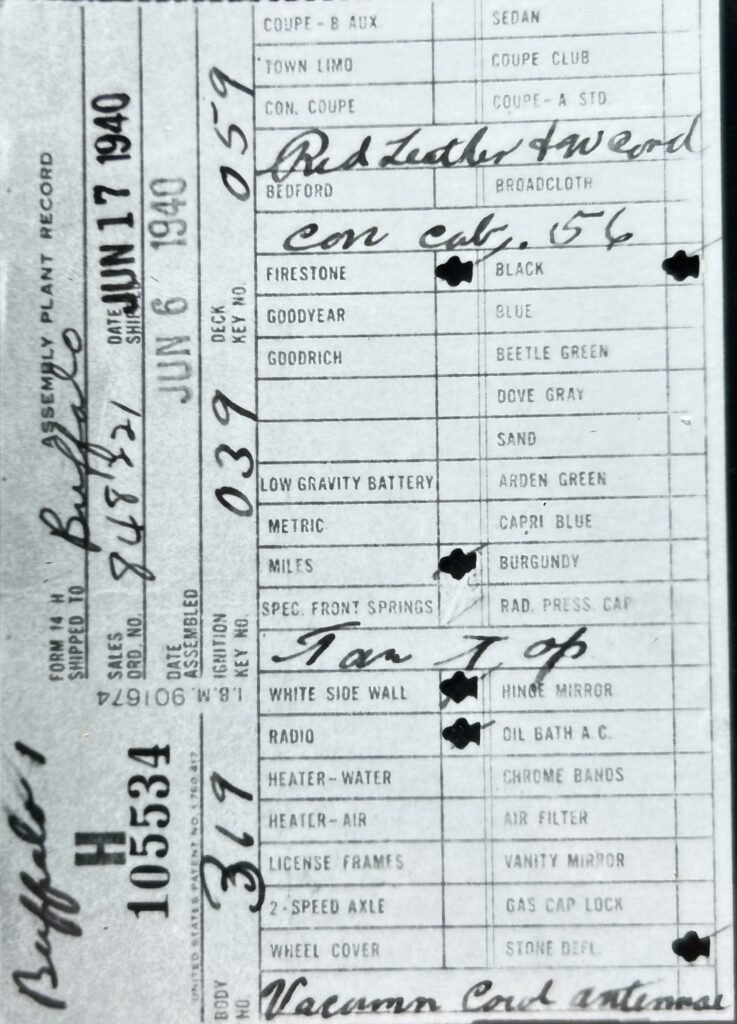 FORM 14 H ASSEMBLY PLANT RECORD
SHIPPED TO Buffalo
SALES ORD. NO. DATE SHIPPED JUN 17 1940
DATE ASSEMBLED JUN 6 1940
IGNITION KEY NO. 039 DECK KEY NO. 059
I.B.M. 901674
Buffalo 1
H
105534
UNITED STATES PATENT NO. 1,780,417
BODY NO. 319
COUPE-B AUX SEDAN
TOWN LIMO COUPE CLUB
CON. COUPE COUPE-A STD.
Red Leather & W Cord
BEDFORD BROADCLOTH
con cab. 56
FIRESTONE BLACK
GOODYEAR BLUE
GOODRICH BEETLE GREEN
DOVE GRAY
SAND
LOW GRAVITY BATTERY ARDEN GREEN
METRIC CAPRI BLUE
MILES BURGUNDY
SPEC. FRONT SPRINGS RAD. PRESS. CAP
Tan Top
WHITE SIDE WALL HINGE MIRROR
RADIO OIL BATH A.C.
HEATER-WATER CHROME BANDS
HEATER-AIR AIR FILTER
LICENSE FRAMES VANITY MIRROR
2-SPEED AXLE GAS CAP LOCK
WHEEL COVER STONE DEFL.
Vacumn Cowl antennae